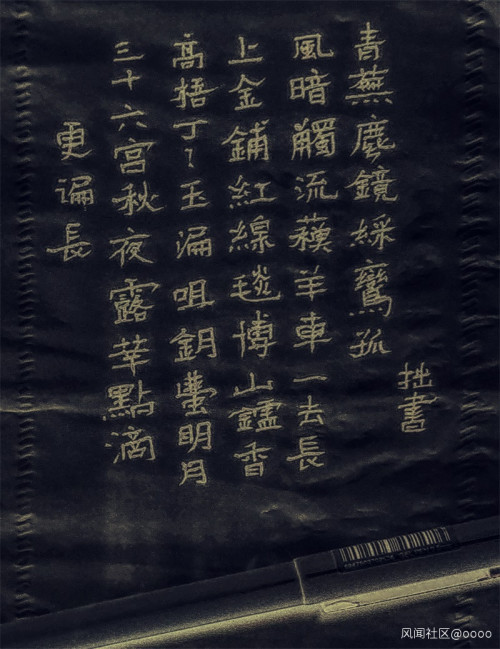 更漏長
三十六宮秋夜露華點滴
高梧丁〻玉漏咽銅壺明月
上金鋪紅線毯博山鑪香
風暗觸流蘓羊車一去長
青蕪塵鏡綵鸞孤
拙書
风闻社区@oooo